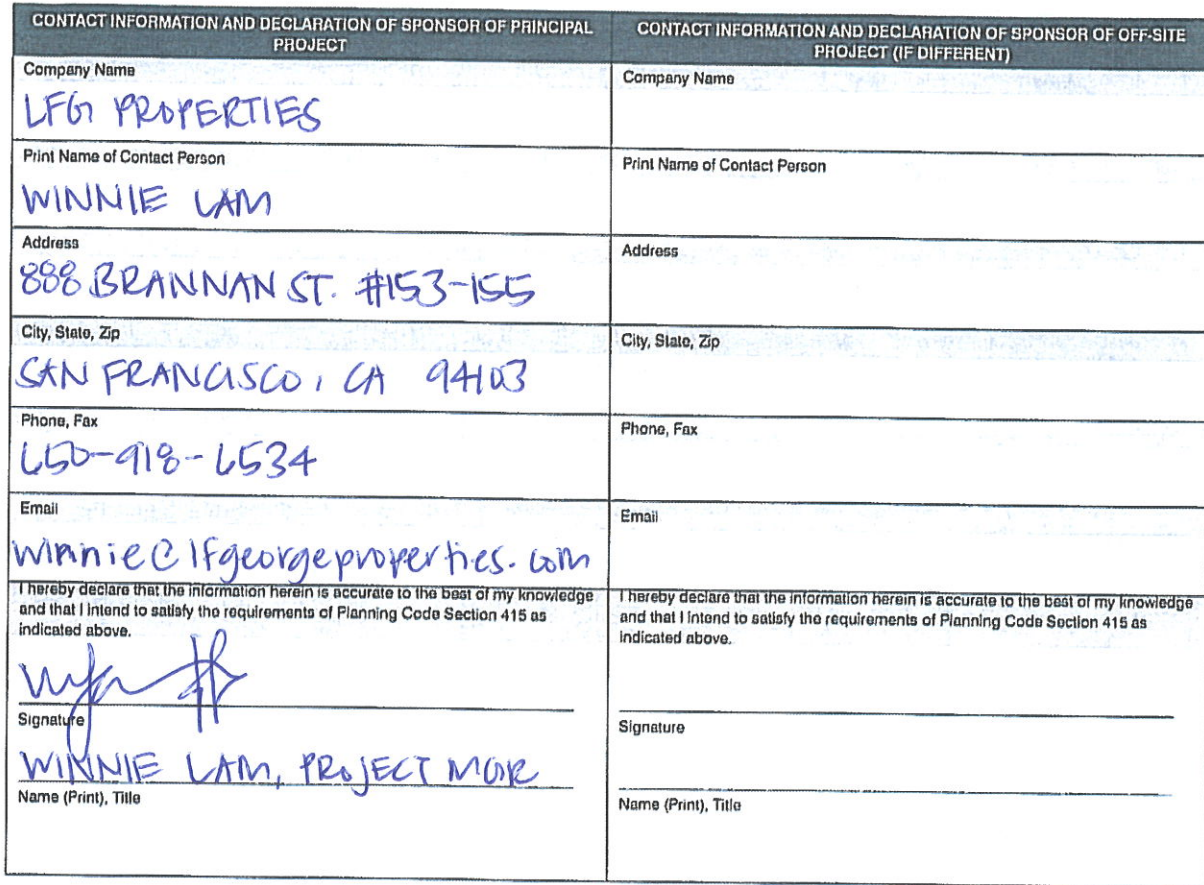 CONTACT INFORMATION AND DECLARATION OF SPONSOR OF PRINCIPAL
PROJECT
Company Name
LFG PROPERTIES
Print Name of Contact Person
WINNIE LAM
Address
888 BRANNAN ST. #153-155
City, State, Zip
SAN FRANCISCO, CA 94103
Phone, Fax
650-918-6534
Email
winnie@lfgeorgeproperties.com
I hereby declare that the information herein is accurate to the best of my knowledge
and that I intend to satisfy the requirements of Planning Code Section 415 as
indicated above.
Signature
WINNIE LAM, PROJECT MGR
Name (Print), Title
CONTACT INFORMATION AND DECLARATION OF SPONSOR OF OFF-SITE
PROJECT (IF DIFFERENT)
Company Name
Print Name of Contact Person
Address
City, State, Zip
Phone, Fax
Email
I hereby declare that the information herein is accurate to the best of my knowledge
and that I intend to satisfy the requirements of Planning Code Section 415 as
indicated above.
Signature
Name (Print), Title